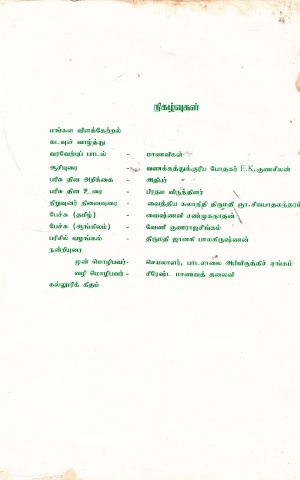 நிகழ்வுகள்
மங்கள விளக்கேற்றல்
கடவுள் வாழ்த்து
வரவேற்புப் பாடல் - மாணவிகள்
ஆசியுரை - வணக்கத்துக்குரிய போதகர் E.K.குணசீலன்
பரிசு தின அறிக்கை - அதிபர்
பரிசு தின உரை - பிரதம விருந்தினர்
நிறுவுனர் நினைவுரை - வைத்திய கலாநிதி திருமதி ஞா.சிவபாதசுந்தரம்
பேச்சு (தமிழ்) - வைஷ்ணவி சண்முகநாதன்
பேச்சு (ஆங்கிலம்) - வேணி குணராஜசிங்கம்
பரிசில் வழங்கல் - திருமதி ஜானகி பாலகிருஷ்ணன்
நன்றியுரை
முன் மொழிபவர்- செயலாளர், பாடசாலை அபிவிருத்திச் சங்கம்
வழி மொழிபவர் - சிரேஷ்ட மாணவத் தலைவி
கல்லூரிக் கீதம்